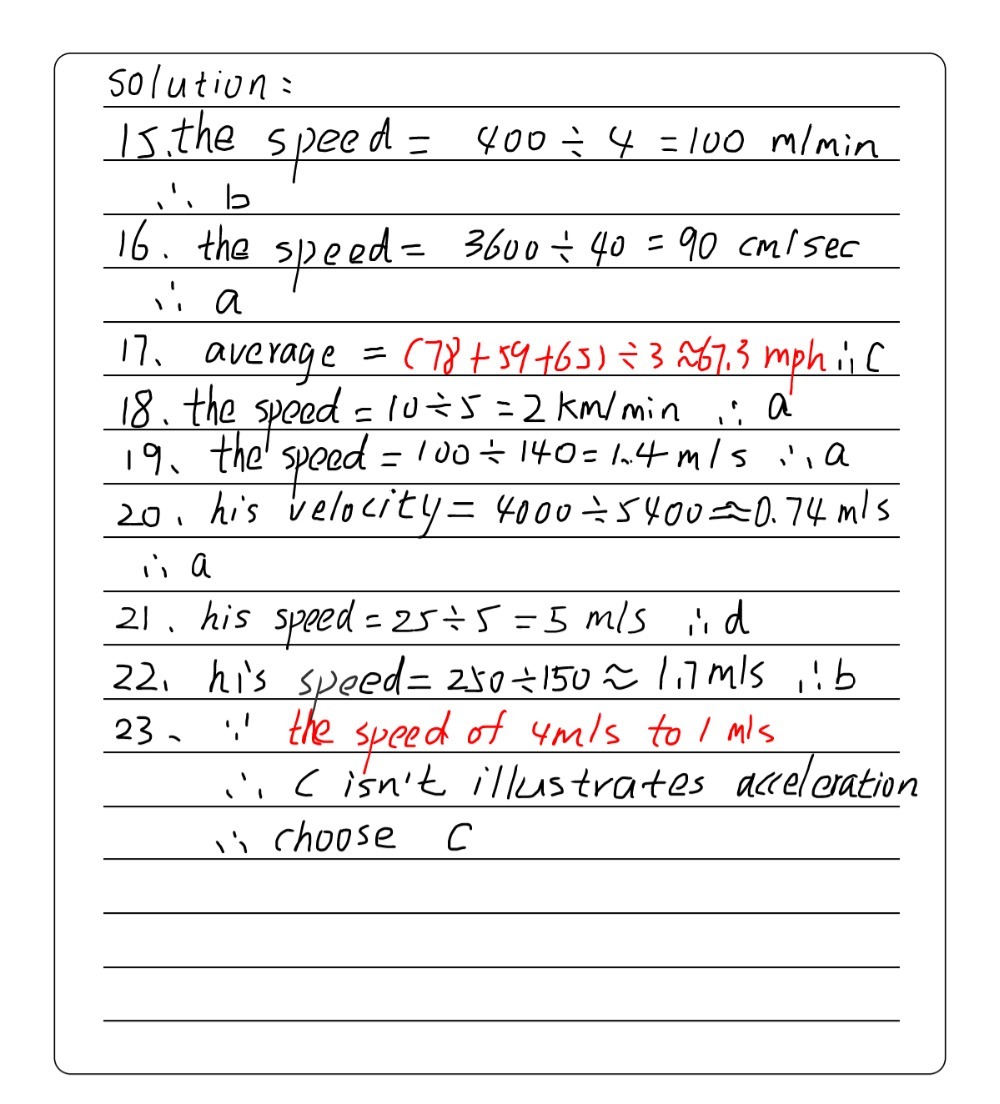 Solution:
15. the speed = 400 ÷ 4 = 100 m/min
∴ b
16. the speed = 3600 ÷ 40 = 90 cm/sec
∴ a
17、 average = (78+59+65) ÷ 3 ≈ 67.3 mph ∴ C
18. the speed = 10 ÷ 5 = 2 km/min ∴ a
19、 the speed = 100 ÷ 140 = 1.4 m/s ∴ a
20. his velocity = 4000 ÷ 5400 ≈ 0.74 m/s
∴ a
21. his speed = 25 ÷ 5 = 5 m/s ∴ d
22. his speed = 250 ÷ 150 ≈ 1.7 m/s ∴ b
23、 ∵ the speed of 4m/s to 1 m/s
∴ C isn't illustrates acceleration
∴ choose C